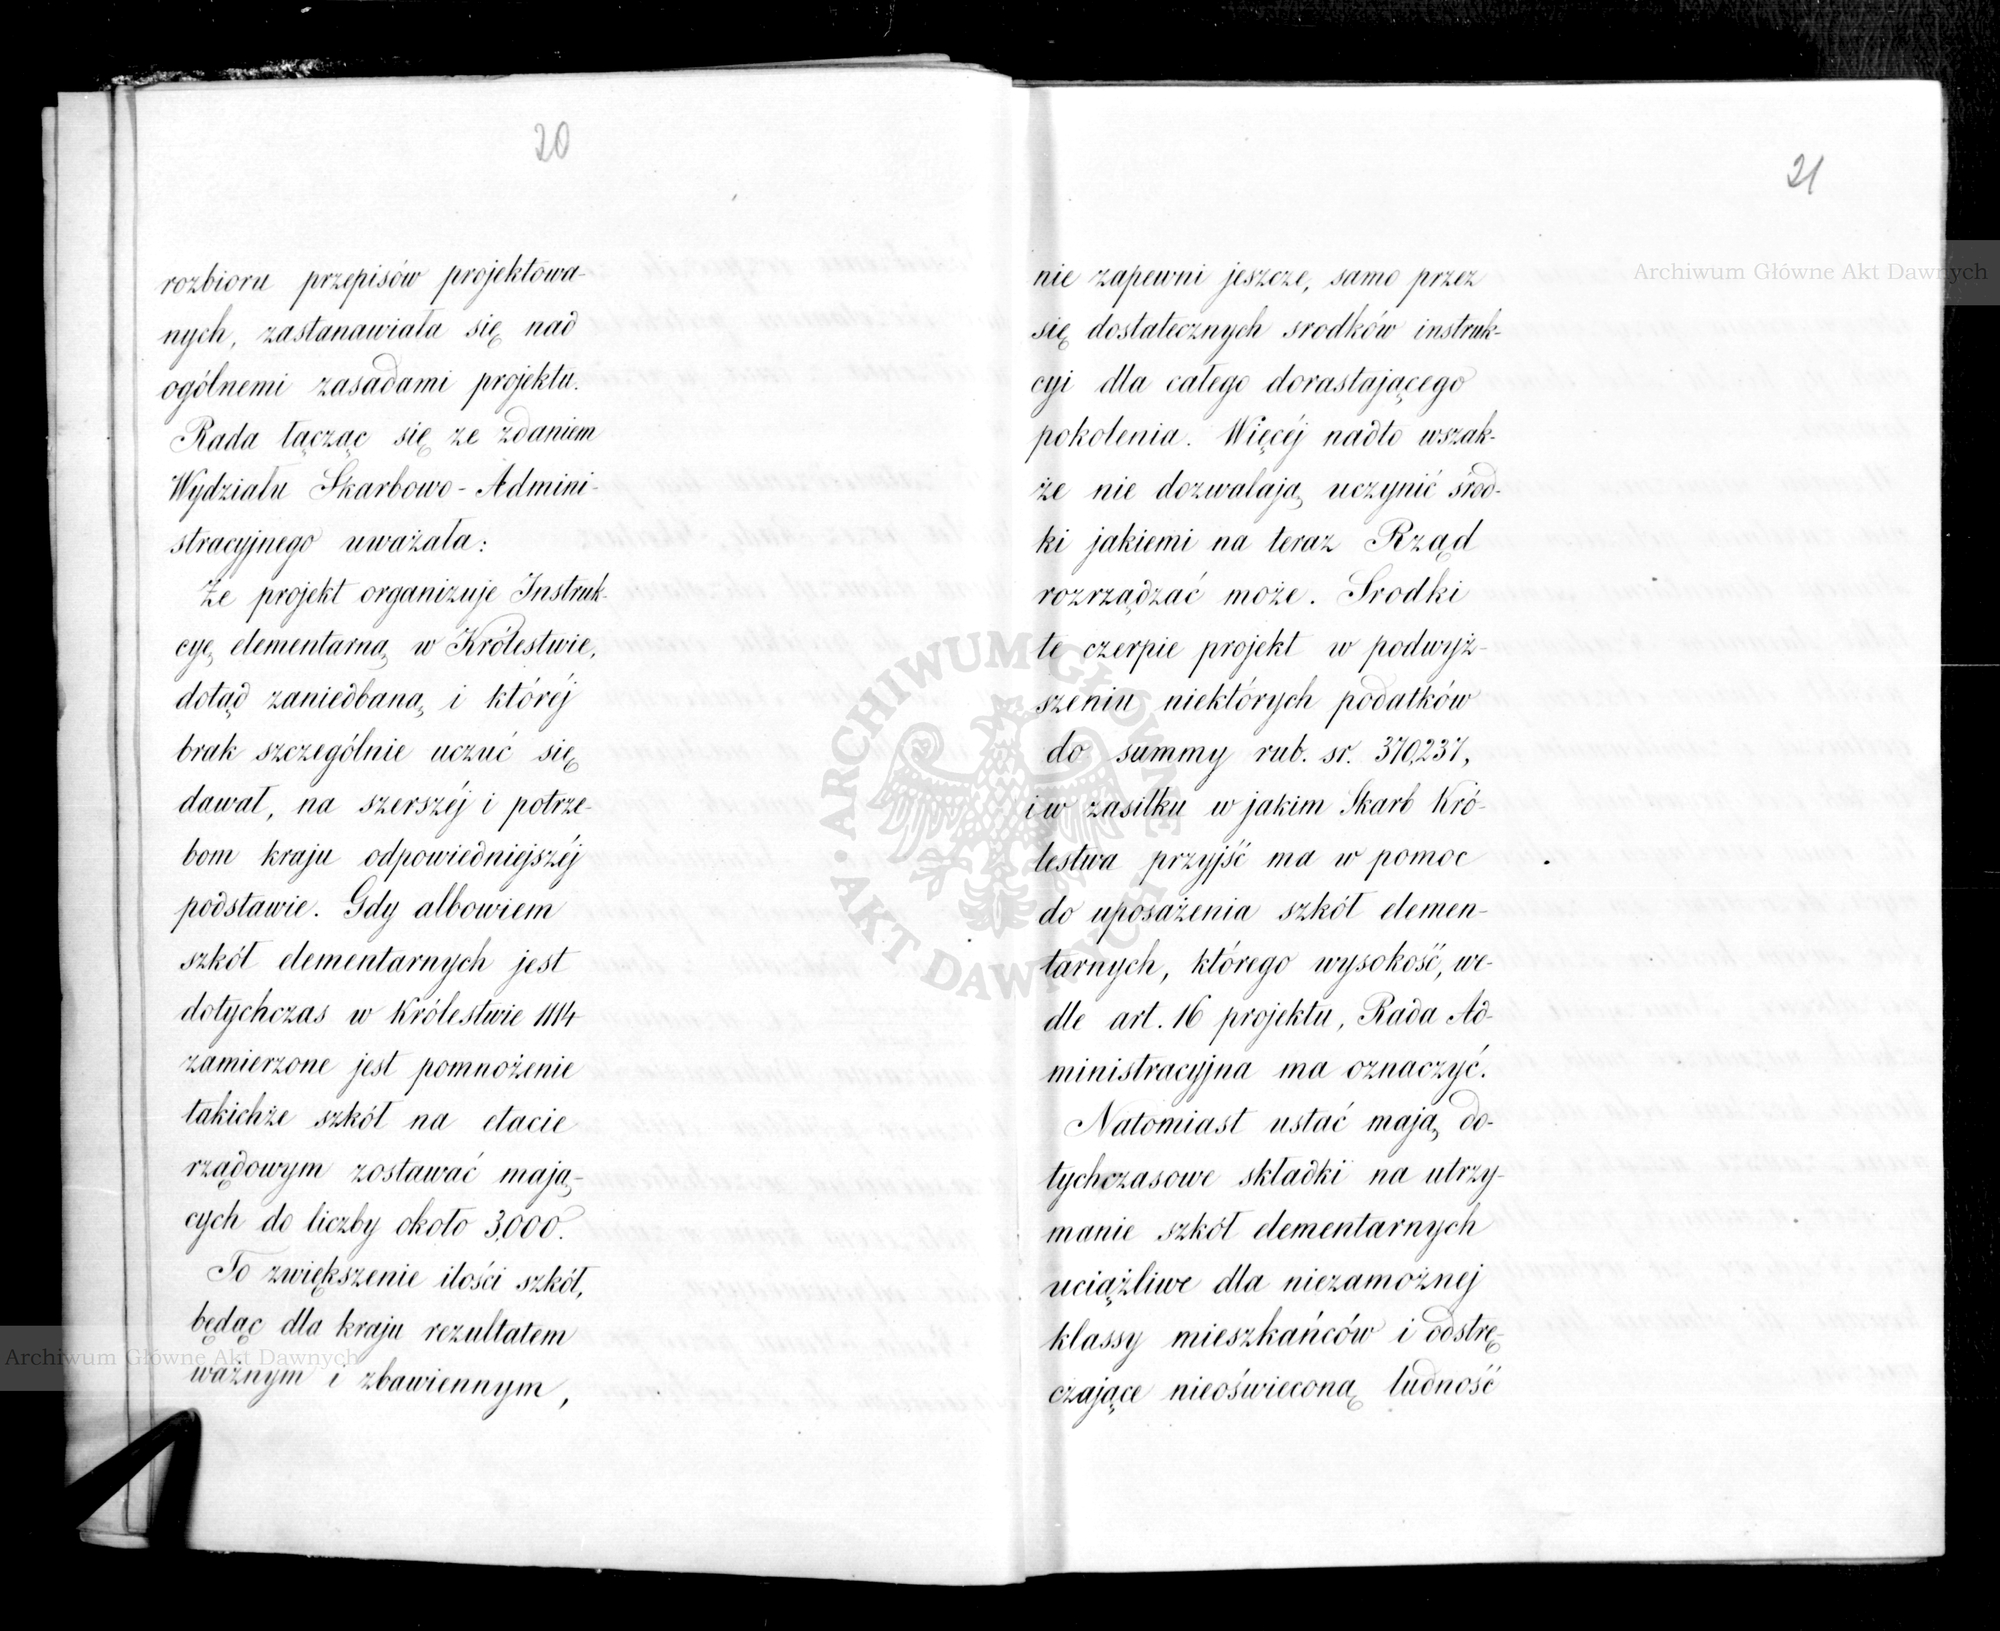 20
rozbioru przepisów projektowa-
nych, zastanawiała się nad
ogólnemi zasadami projektu.
Rada łącząc się ze zdaniem
Wydziału Skarbowo-Admini-
stracyjnego uważała:
Że projekt organizuje Instruk-
cyę elementarną w Królestwie,
dotąd zaniedbaną i któréj
brak szczególnie uczuć się
dawał, na szerszéj i potrze-
bom kraju odpowiedniejszéj
podstawie. Gdy albowiem
szkół elementarnych jest
dotychczas w Królestwie 1114
zamierzone jest pomnożenie
takichże szkół na etacie
rządowym zostawać mają-
cych do liczby około 3,000.
To zwiększenie ilości szkół,
będąc dla kraju rezultatem
ważnym i zbawiennym,
21
nie zapewni jeszcze, samo przez
się dostatecznych srodków instruk-
cyi dla całego dorastającego
pokolenia. Więcéj nadto wszak-
że nie dozwalają uczynić środ-
ki jakiemi na teraz Rząd
rozrządzać może. Srodki
te czerpie projekt w podwyż-
szeniu niektórych podatków
do summy rub. sr. 370,237,
i w zasiłku w jakim Skarb Kró-
lestwa przyjść ma w pomoc
do uposażenia szkół elemen-
tarnych, którego wysokość, we-
dle art. 16 projektu, Rada Ad-
ministracyjna ma oznaczyć.
Natomiast ustać mają do-
tychczasowe składki na utrzy-
manie szkół elementarnych
uciążliwe dla niezamożnej
klassy mieszkańców i odstrę-
czające nieoświeconą ludność
Archiwum Główne Akt Dawnych
Archiwum Główne Akt Dawnych
ARCHIWUM GŁÓWNE AKT DAWNYCH